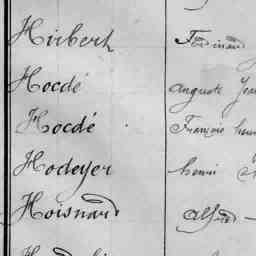 Hirbert Ferdinand
Hocdé auguste
Hocdé François henri
Hodeyer henri
Hoisnard alfred